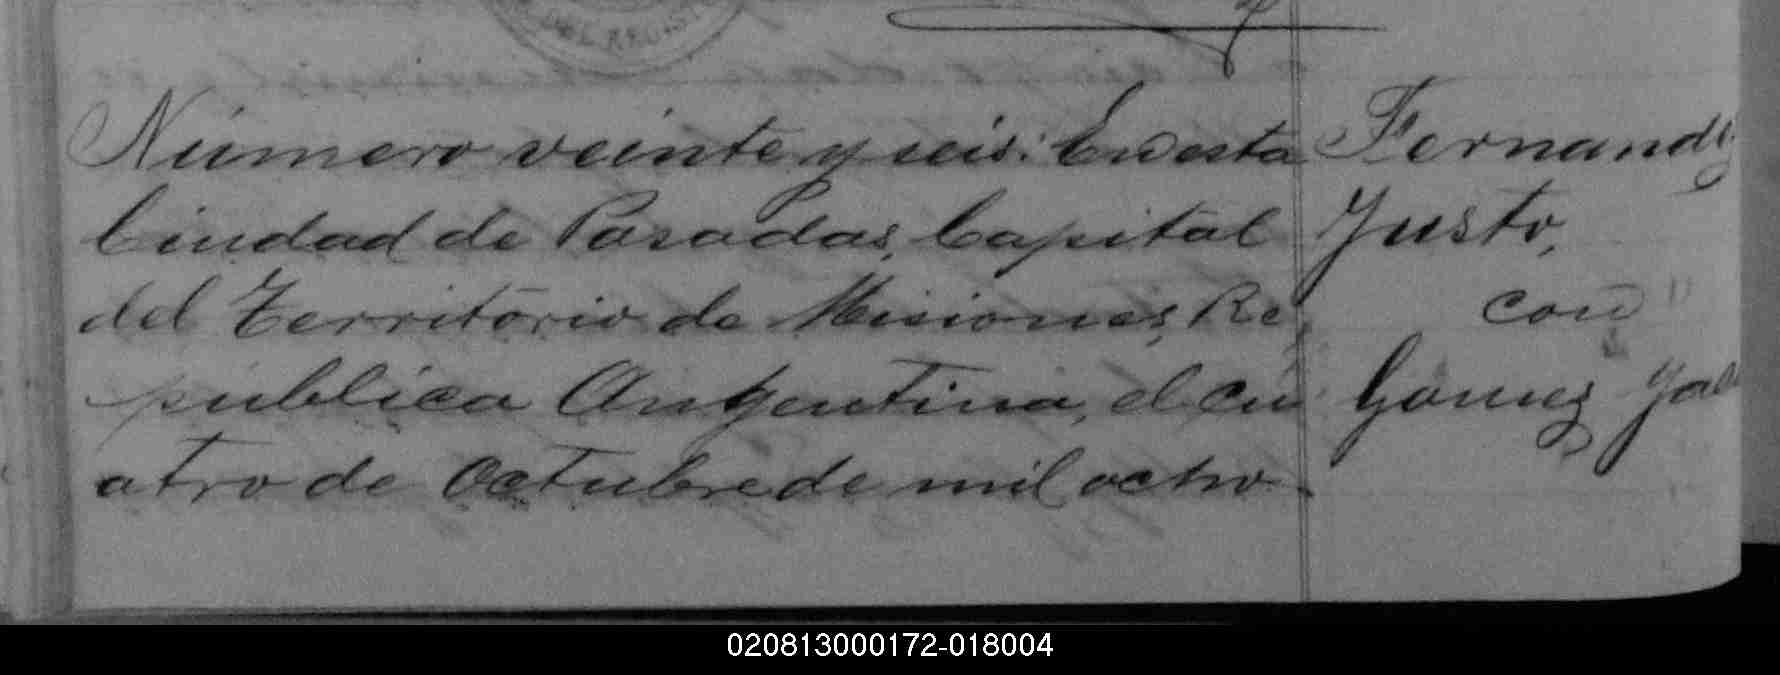 DEL REGIST
Número veinte y seis: En esta
Ciudad de Posadas, Capital
del Territorio de Misiones, Re
pública Argentina, el cu
atro de Octubre de mil ocho
Fernandez
Justo,
con
Gomez
020813000172-018004